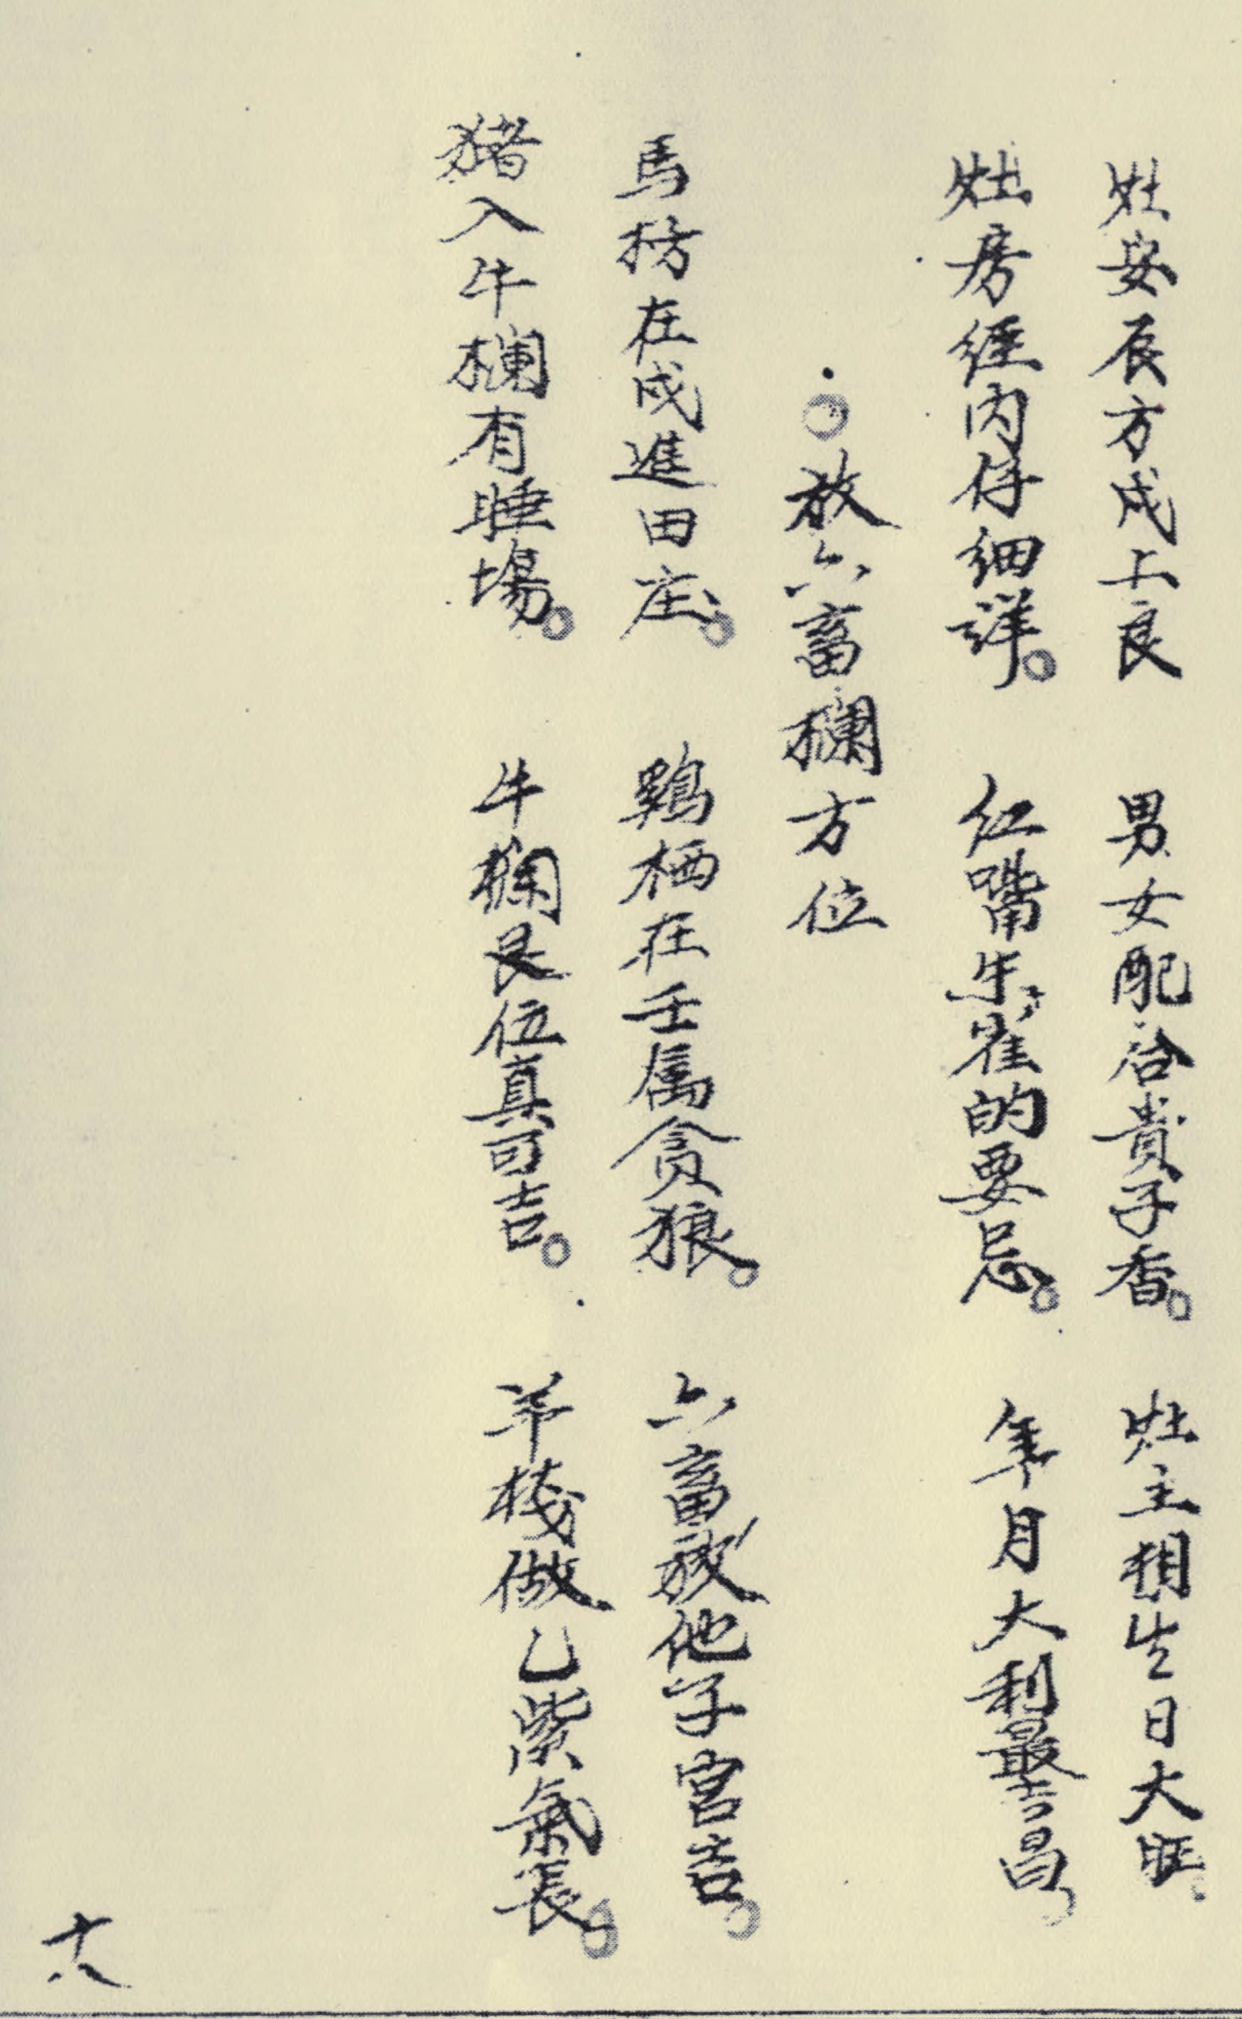 灶安辰方戍上良　男女配合貴子香。灶主相生日大旺。
灶房經内仔细詳。红嘴朱雀的要忌。年月大利最吉昌。
○放六畜欄方位
馬枋在戍進田庄。鷄栖在壬属貪狼。六畜放他子宮吉。
猪入牛欄有睡塲。牛欄艮位真可吉。羊棧做乙紫氣長。
十八